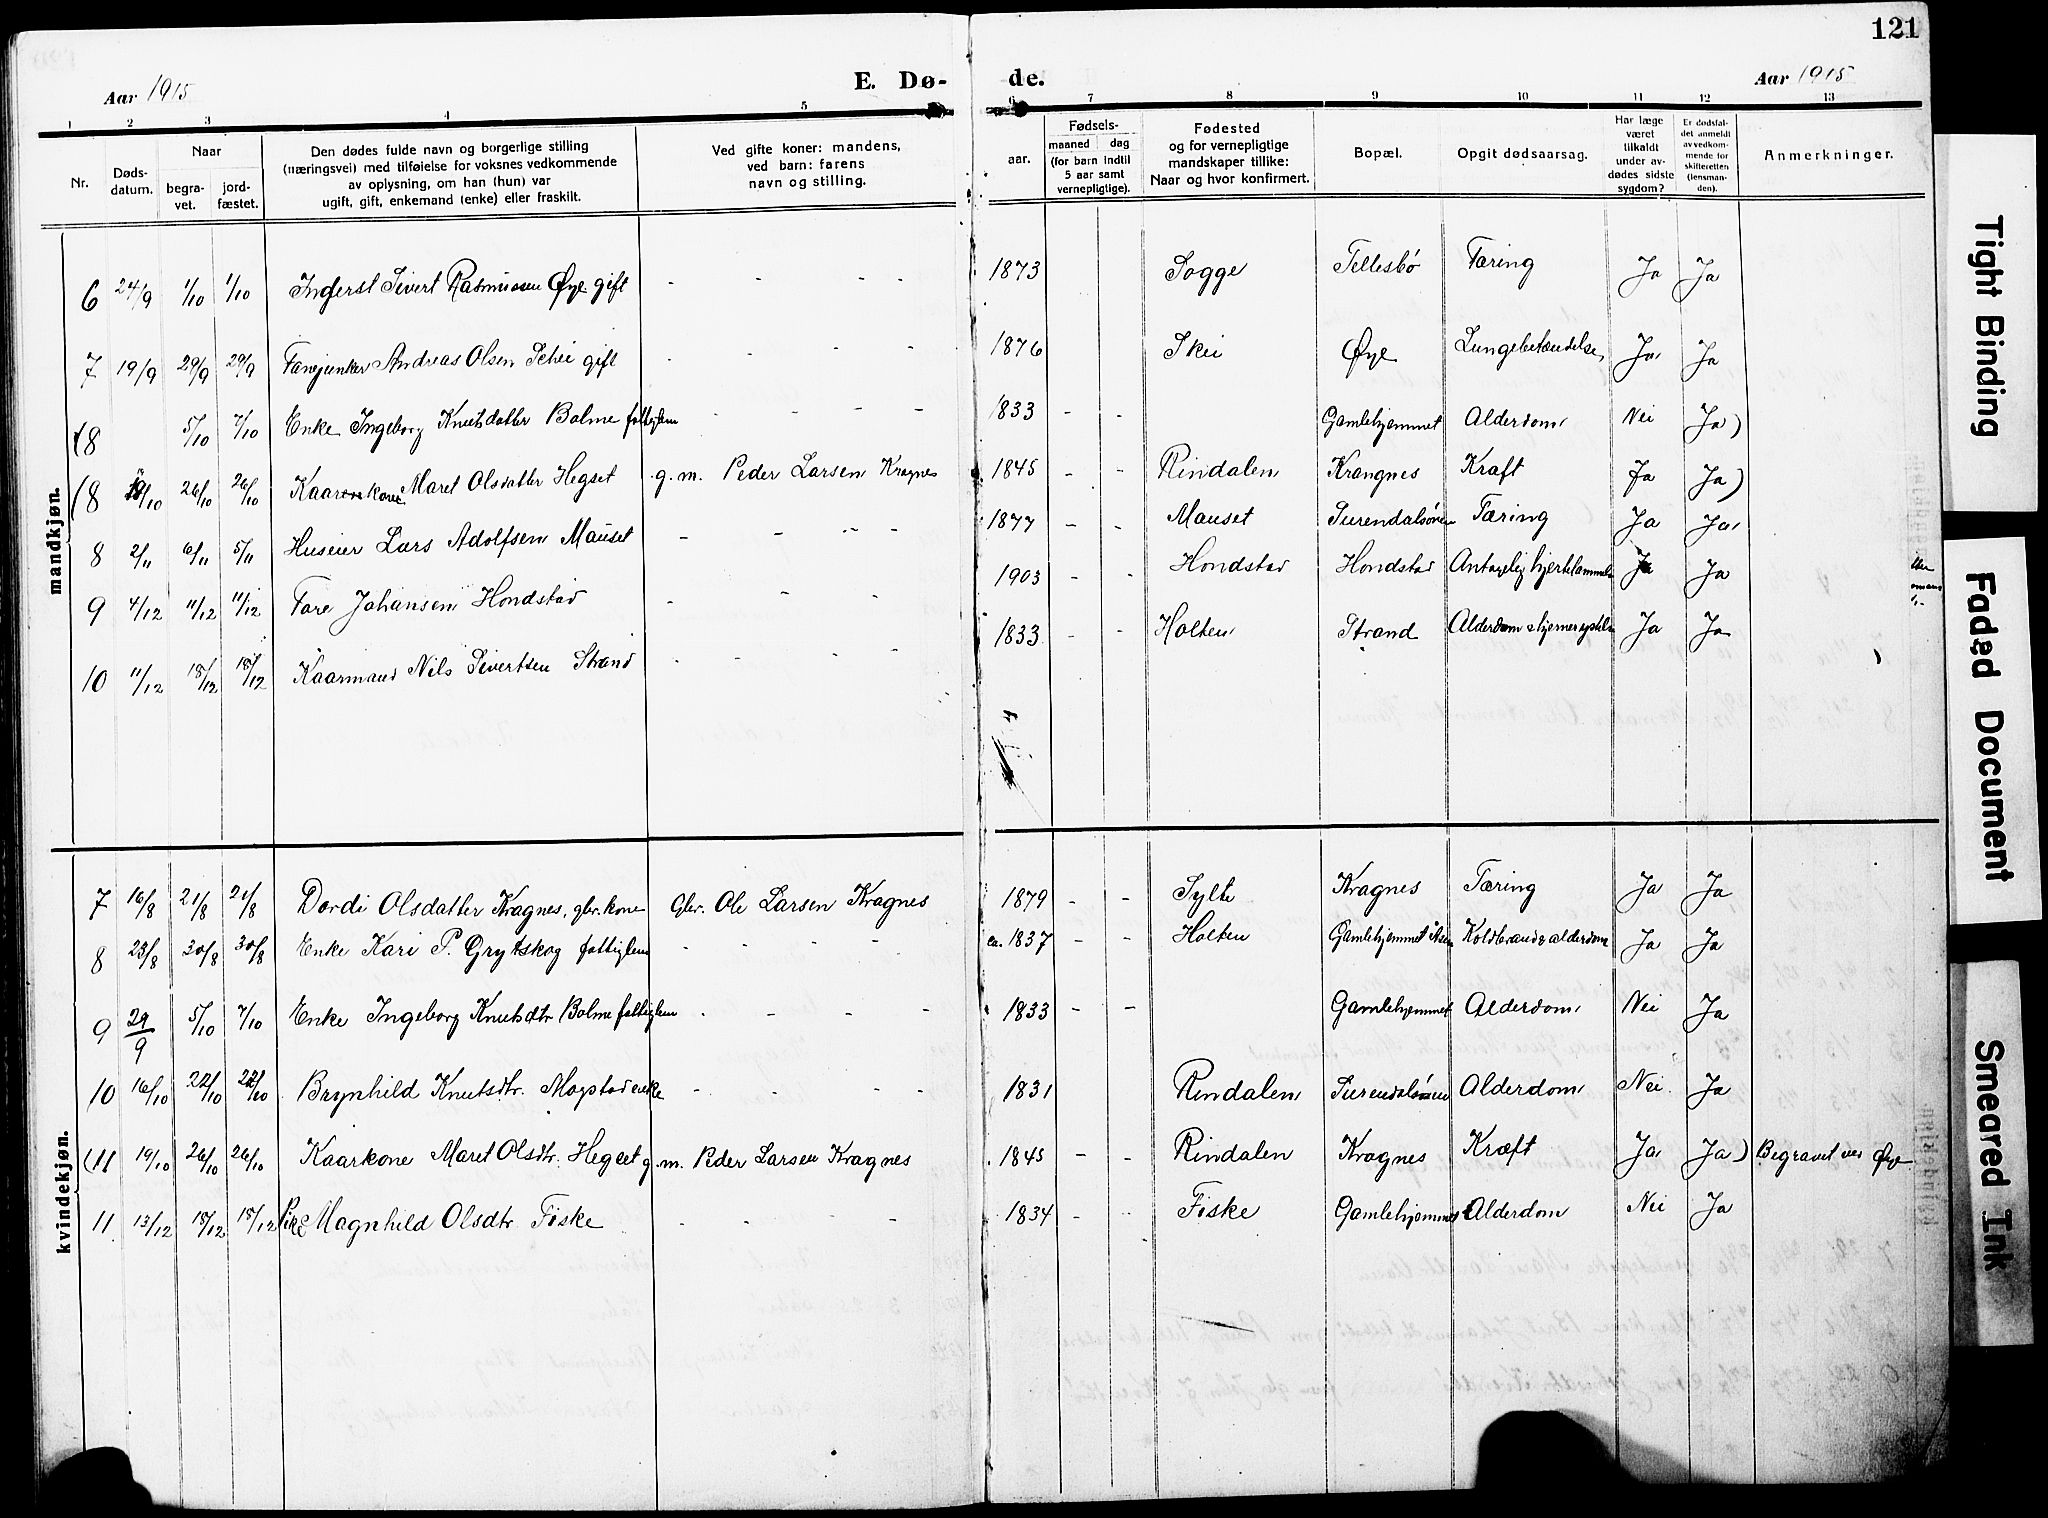 121
Aar 1915 E. Dø- de. Aar 1915
1 2 3 4 5 6 7 8 9 10 11 12 13
Nr.
Døds-
datum.
Naar
begra-
vet.
jord-
fæstet.
Den dødes fulde navn og borgerlige stilling
(næringsvei) med tilføielse for voksnes vedkommende
av oplysning, om han (hun) var
ugift, gift, enkemand (enke) eller fraskilt.
Ved gifte koner: mandens,
ved barn: farens
navn og stilling.
aar.
Fødsels-
maaned dag
(for barn indtil
5 aar samt
vernepligtige).
Fødested
og for vernepligtige
mandskaper tillike:
Naar og hvor konfirmert.
Bopæl.
Opgit dødsaarsag.
Har læge
været
tilkaldt
under av-
dødes sidste
sygdom?
Er dødsfal-
det anmeldt
av vedkom-
mende for
skifteretten
(lensman-
den).
Anmerkninger.
mandkjøn.
6 24/9 1/10 1/10 Sivert Rasmussen Øye gift - - - - 1873 Sogge Tellesbø Tæring Ja Ja
7 19/9 29/9 29/9 Fanejunker Andreas Olsen Schei gift - - - - 1876 Skei Øye Lungebetændelse Ja Ja
(8 5/10 7/10 Enke Ingeborg Knutsdatter Bolme fattiglem - - - - 1833 - - Gamlehjemmet Alderdom Nei Ja)
(8 19/10 26/10 26/10 Kaarkone Maret Olsdatter Hegset g. m. Peder Larsen Kragnes 1845 - - Rindalen Krangnes Kræft Ja Ja)
8 2/11 6/11 5/11 Huseier Lars Adolfsen Mauset - - - - 1877 - - Mauset Surendalsøren Tæring Ja Ja
9 4/12 11/12 11/12 Tore Johansen Hondstad - - - 1903 - - Hondstad Hondstad Antagelig hjertelammelse Ja Ja
10 11/12 18/12 18/12 Kaarmand Nils Sivertsen Strand - - - - 1833 - - Holten Strand Alderdom Ja Ja
kvindekjøn.
7 16/8 21/8 21/8 Dordi Olsdatter Kragnes, gbr. kone Gbr. Ole Larsen Kragnes 1879 - - Sylte Kragnes Tæring Ja Ja
8 23/8 30/8 30/8 Enke Kari P. Grytskog fattiglem - - - - ca. 1837 - - Holten Gamlehjemmet Koldbrand & alderdom Ja Ja
9 29/9 5/10 7/10 Enke Ingeborg Knutsdtr Bolme fattiglem - - - - 1833 - - Gamlehjemmet Alderdom Nei Ja
10 16/10 22/10 22/10 Brynhild Knutsdtr. Mogstad enke - - - - 1831 - - Rindalen Surendalsøren Alderdom Nei. Ja
(11 19/10 26/10 26/10 Kaarkone Maret Olsdtr. Hegset g. m. Peder Larsen Kragnes 1845 - - Rindalen Kragnes Kræft Ja Ja) Begravet ved Øye
11 13/12 18/12 18/12 Pike Magnhild Olsdtr. Fiske - - - - 1834 - - Fiske Gamlehjemmet Alderdom Nei Ja
Tight Binding
Faded Document
Smeared Ink